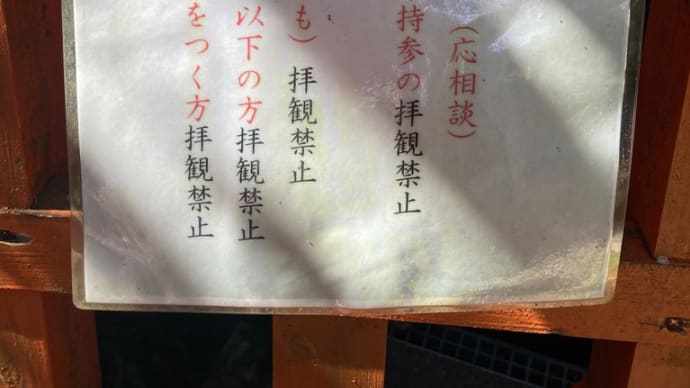 （応相談）
持参の拝観禁止
も）拝観禁止
以下の方拝観禁止
をつく方拝観禁止